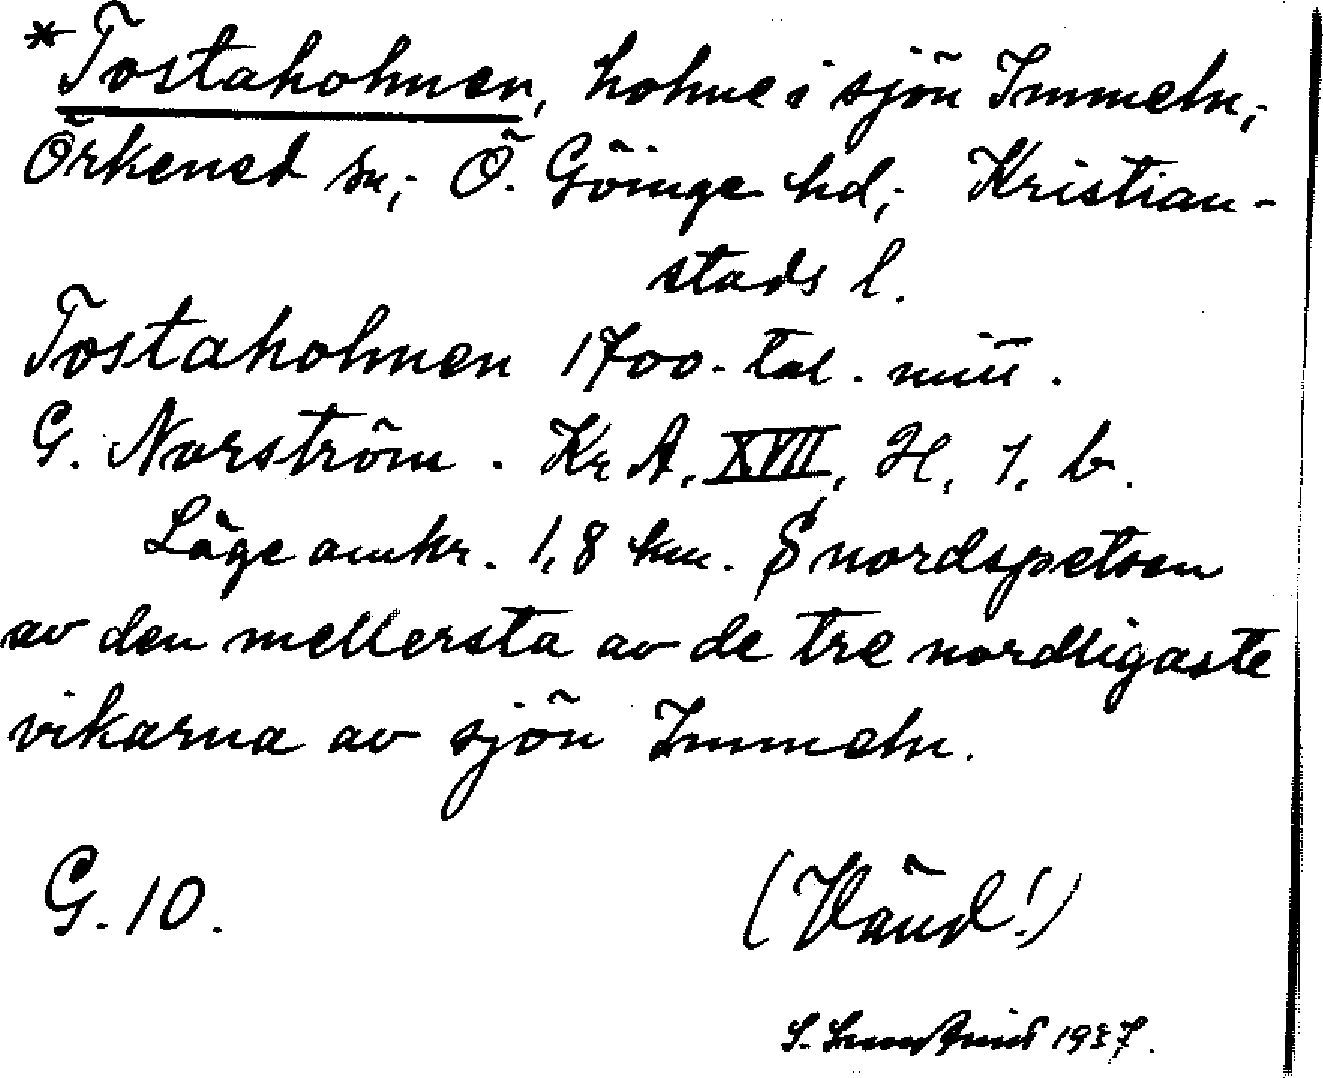 *Tostaholmen, holme i sjön Immeln,;
Örkened sn,; Ö. Göinge hd,; Kristian-
stads l.
Tostaholmen 1700-tal. mitt.
G. Norström. Kr A. XVII, H, 1. b.
Läge omkr. 1,8 km. S nordspetsen
av den mellersta av de tre nordligaste
vikarna av sjön Immeln.
G. 10.
(Vänd!)
1937.